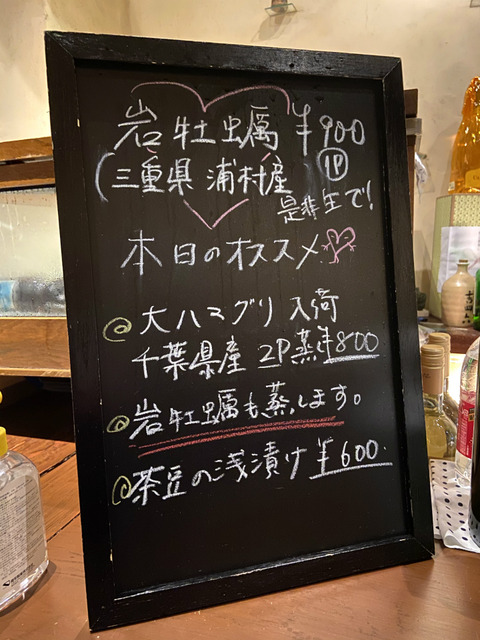 岩牡蠣 ¥900
1P
(三重県 浦村産
是非生で!
本日のオススメ
大ハマグリ 入荷
千葉県産 2P蒸¥800
岩牡蠣も蒸します。
茶豆の浅漬け ¥600.